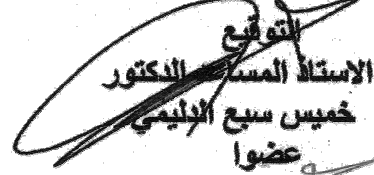 التوقيع
الاستاذ المساعد الدكتور
خميس سبع الدليمي
عضوا